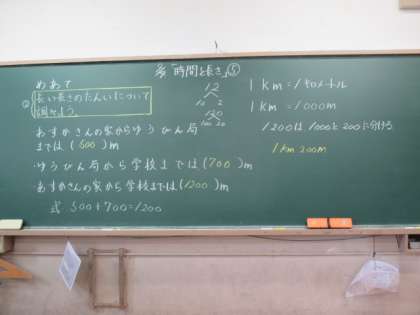 「時間と長さ」⑤
めあて
長い長さのたんいについて
調べよう。
あすかさんの家からゆうびん局
までは(500)m
ゆうびん局から学校までは(700)m
あすかさんの家から学校までは(1200)m
式 500+700=1200
12
10 2
1200
1000 200
1km=1キロメートル
1km=1000m
1200は1000と200に分ける
1km 200m